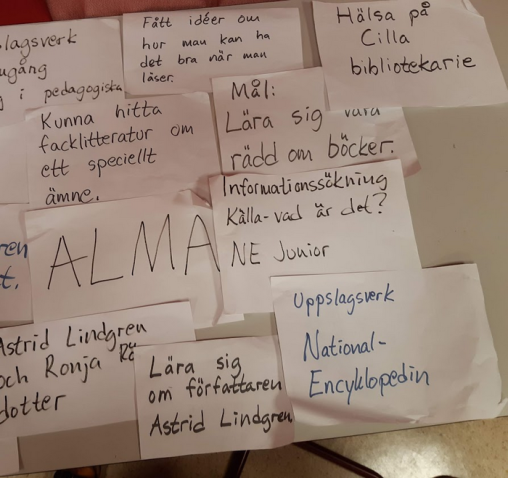 lagsverk
ugång
i pedagogiska
Fått idéer om
hur man kan ha
det bra när man
läser.
Hälsa på
Cilla
bibliotekarie
Kunna hitta
facklitteratur om
ett speciellt
ämne.
Mål:
Lära sig vara
rädd om böcker.
Informationssökning
Källa-vad är det?
NE Junior
en
t.
ALMA
Uppslagsverk
National-
Encyklopedin
Astrid Lindgren
och Ronja
dotter
Lära sig
om författaren
Astrid Lindgren